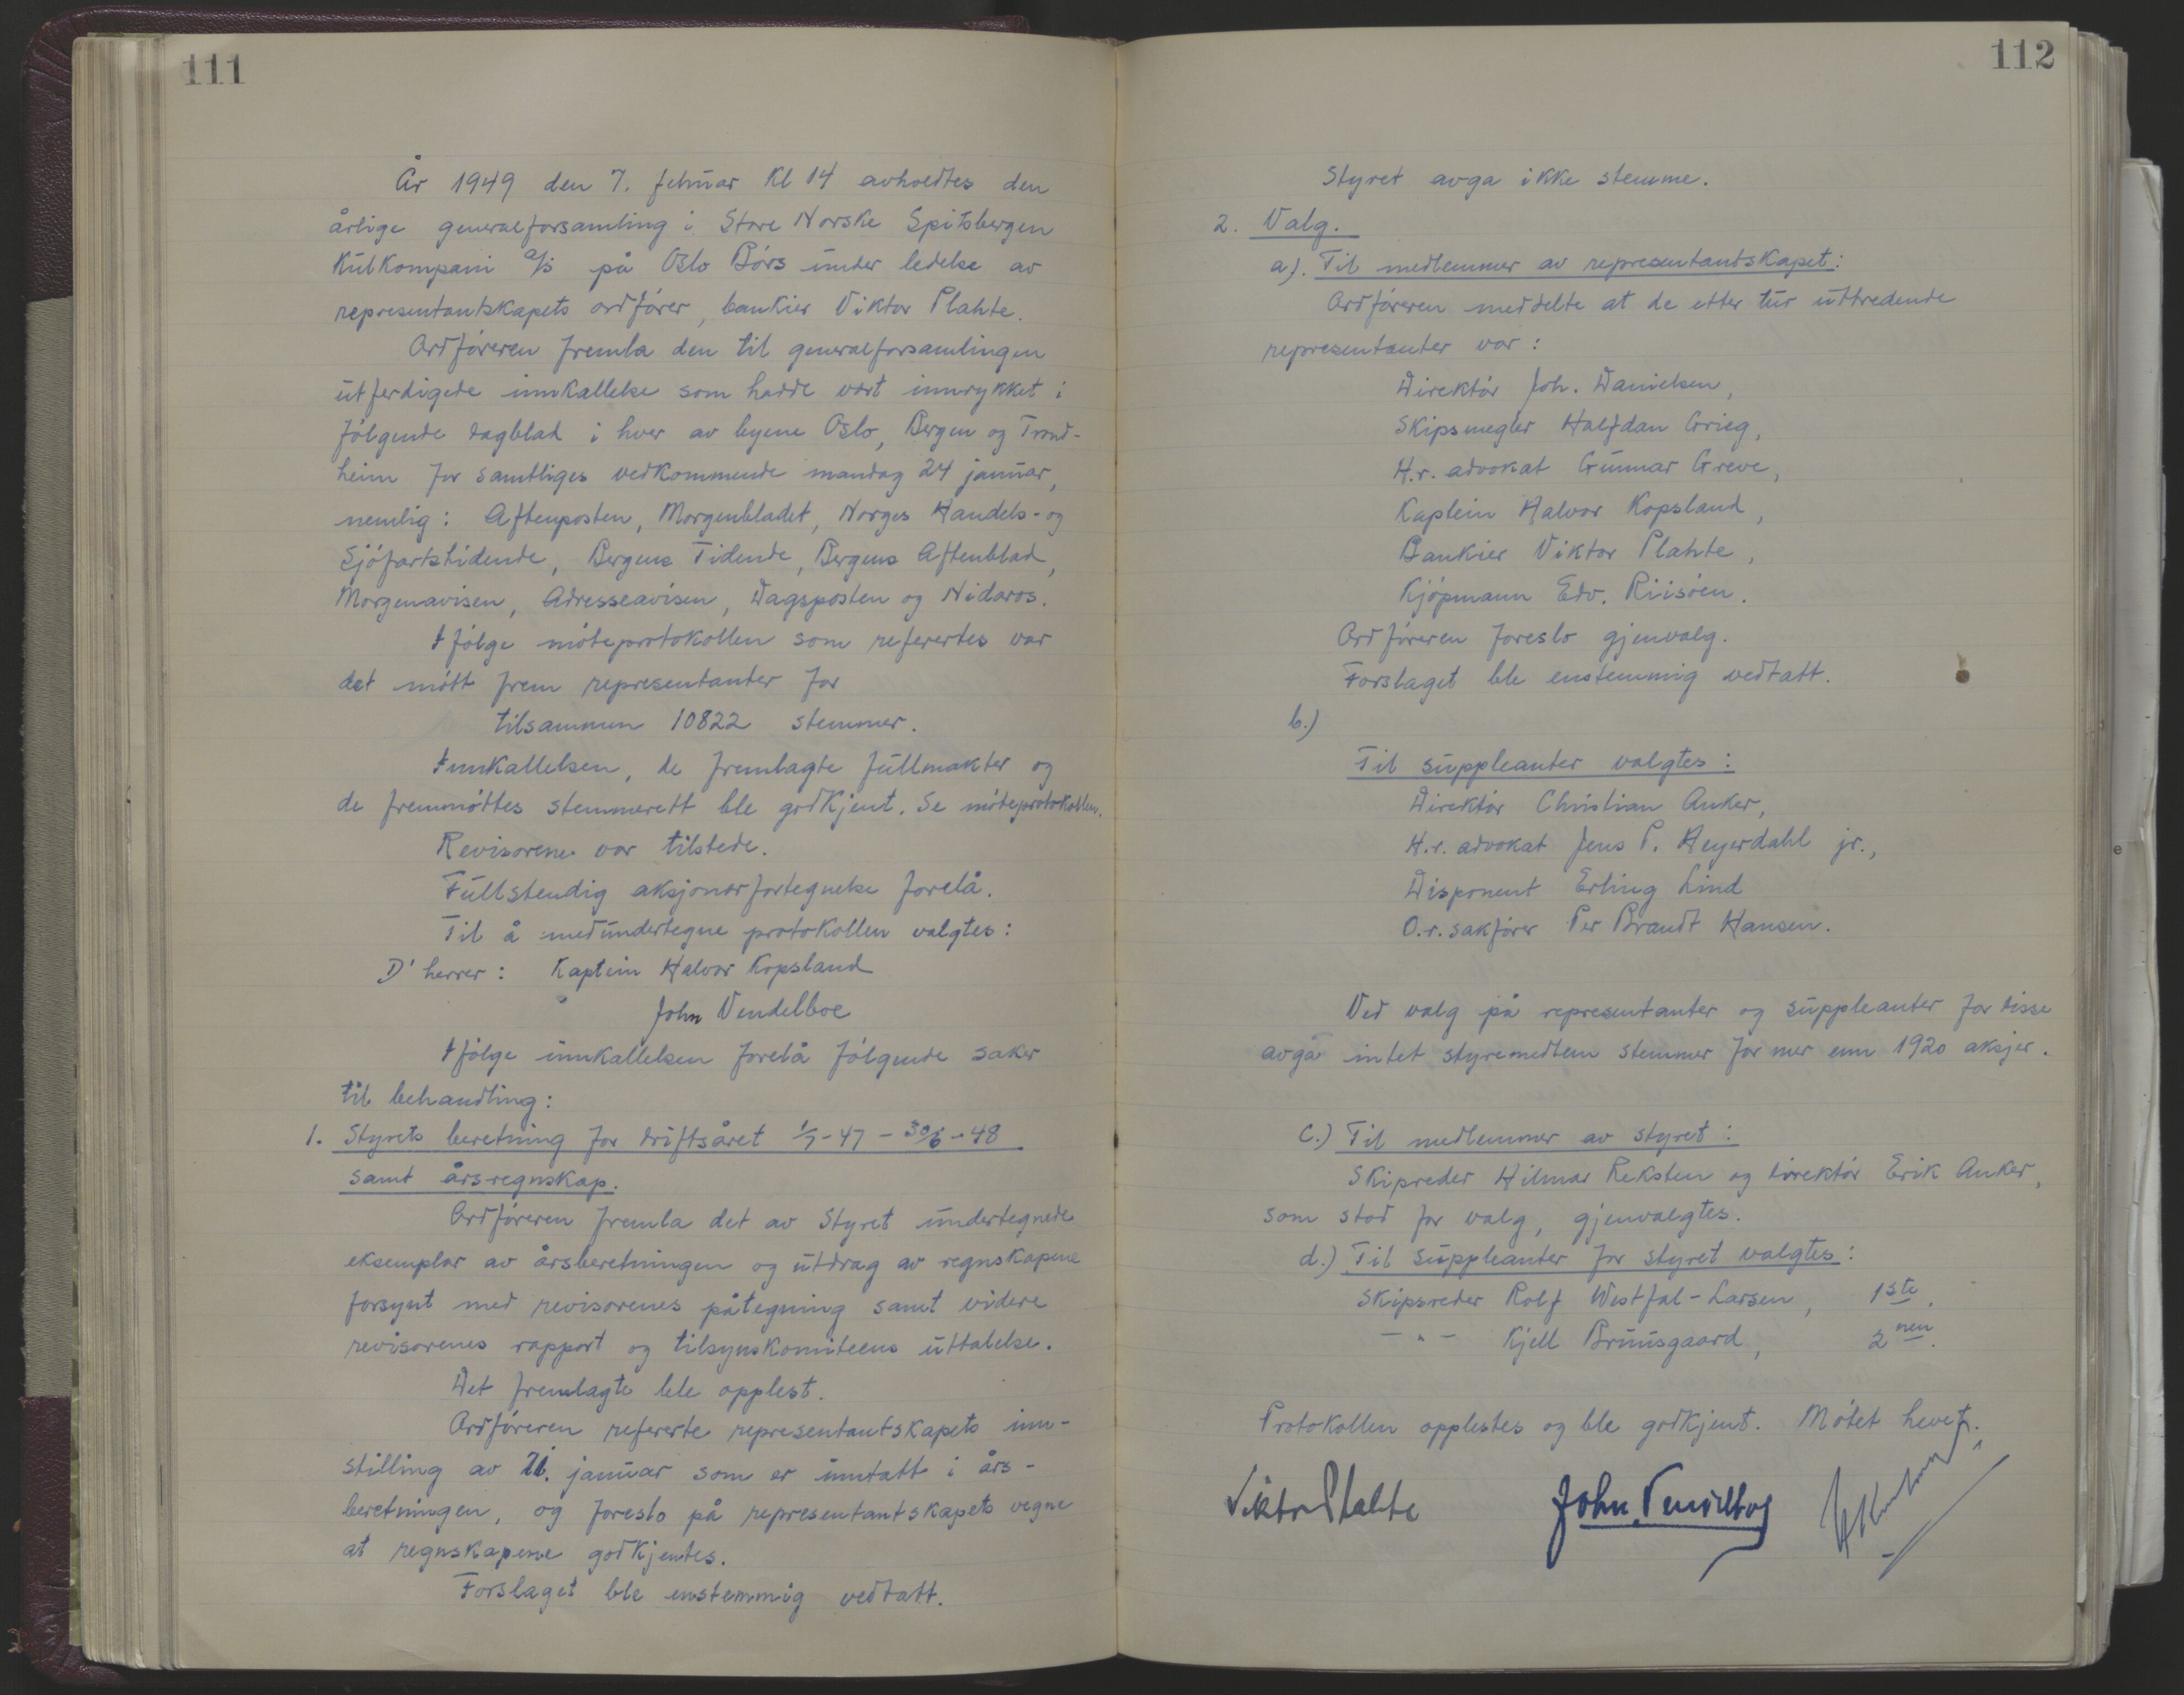 111
År 1949 den 7. februar kl 14 avholdtes den
årlige generalforsamling i Store Norske Spitsbergen
Kulkompani A/S på Oslo Börs under ledelse av
representantskapets ordförer, bankier Viktor Plahte.
Ordföreren fremla den til generalforsamlingen
utferdigede innkallelse som hadde vært innrykket i
fölgende dagblad i hver av byene Oslo, Bergen og Trond-
heim for samtliges vedkommende mandag 24 januar,
nemlig: Aftenposten, Morgenbladet, Norges Handels- og
Sjöfartstidende, Bergens Tidende, Bergens Aftenblad,
Morgenavisen, Adresseavisen, Dagsposten og Nidaros.
Ifölge möteprotokollen som refertes var
det mött frem representanter for
tilsammen 10822 stemmer.
Innkallelsen, de fremlagte fullmakter og
de fremmöttes stemmerett ble godkjent. Se möteprotokollen.
Revisorene var tilstede.
Fullstendig aksjonærfortegnelse forelå.
Til å medundertegne protokollen valgtes:
D' herrer: Kaptein Halvor Kopsland
John Vendelboe
Ifölge innkallelsen forelå fölgende saker
til behandling:
1. Styrets beretning for driftsåret 1/7-47 - 30/6-48
samt årsregnskap.
Ordföreren fremla det av Styret undertegnede
eksemplar av årsberetningen og utdrag av regnskapene
forsynt med revisorenes påtegning samt videre
revisorenes rapport og tilsynskomiteens uttalelse.
Det fremlagte ble opplest.
Ordföreren refererte representantskapets inn-
stilling av januar som er inntatt i års-
beretningen, og foreslo på representantskapets vegne
at regnskapene godkjentes.
Forslaget ble enstemmig vedtatt.
112
Styret avga ikke stemme.
2. Valg.
a). Til medlemmer av representantskapet:
Ordföreren meddelte at de etter tur uttredende
representanter var:
Direktör Joh. Danielsen,
Skipsmegler Halfdan Grieg,
H.r. advokat Gunnar Greve,
Kaptein Halvor Kopsland,
Bankier Viktor Plahte,
Kjöpmann Edv. Riisöen.
Ordföreren foreslo gjenvalg.
Forslaget ble enstemmig vedtatt.
b.)
Til suppleanter valgtes:
Direktör Christian Anker,
H.r. advokat Jens P. Heyerdahl jr.,
Disponent Erling Lind
O.r. sakförer Per Brandt Hansen.
Ved valg på representanter og suppleanter for disse
avga intet styremedlem stemmer for mer enn 1920 aksjer.
c.) Til medlemmer av styret:
Skipreder Hilmar Reksten og direktör Erik Anker,
som stod for valg, gjenvalgtes.
d.) Til suppleanter for styret valgtes:
Skipsreder Rolf Westfal-Larsen, 1ste.
- " - Kjell Bruusgaard, 2nen.
Protokollen opplestes og ble godkjent. Mötet hevet.
Viktor Plahte John Vendelboe